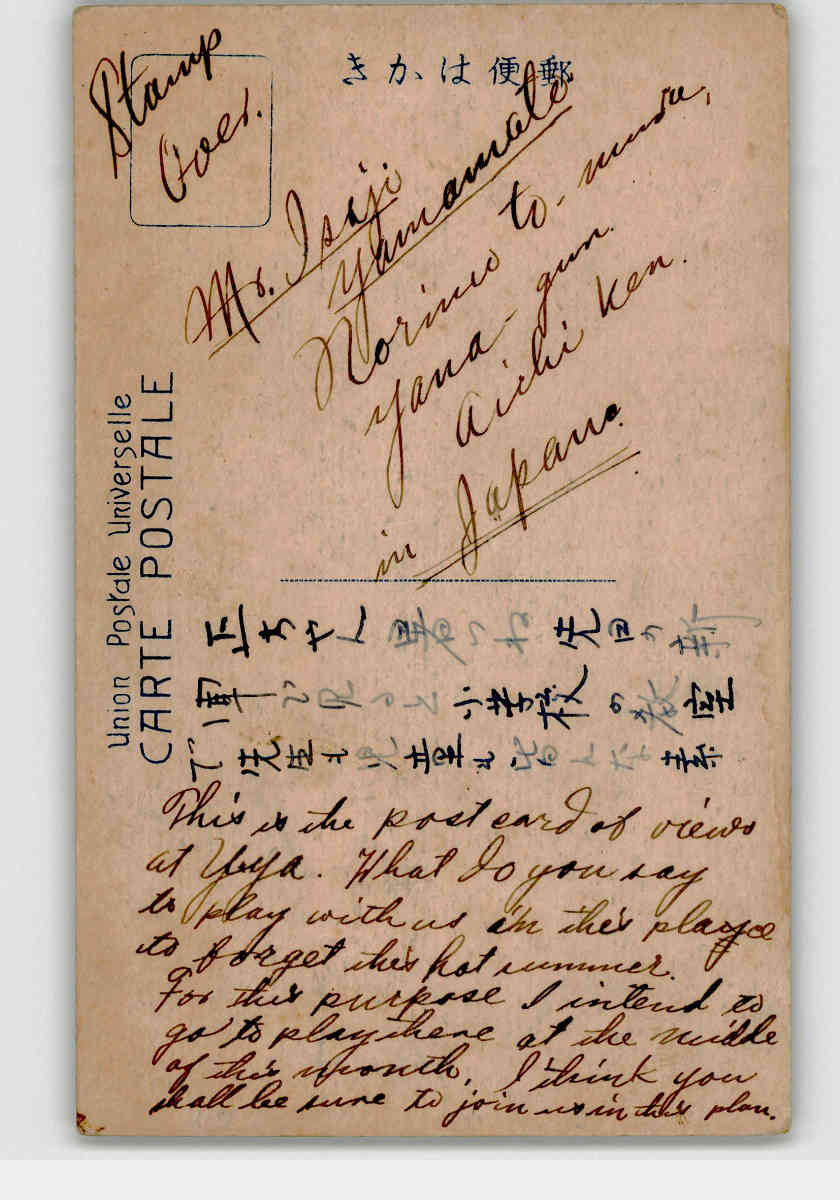 Stamp
Over.
きかは便郵
Mr. Isaji
Yamamoto
Norimo to-mura,
yana-gun.
Aichi Ken.
in Japan.
Union Postale Universelle
CARTE POSTALE
正ちやん 先日の新
小学校の教室
で先生も 童も
This is the post card of views
at Yuya. What do you say
to play with us in this playce
to forget this hot summer.
For this purpose I intend to
go to play there at the middle
of this month, I think you
shall be sure to join us in this plan.